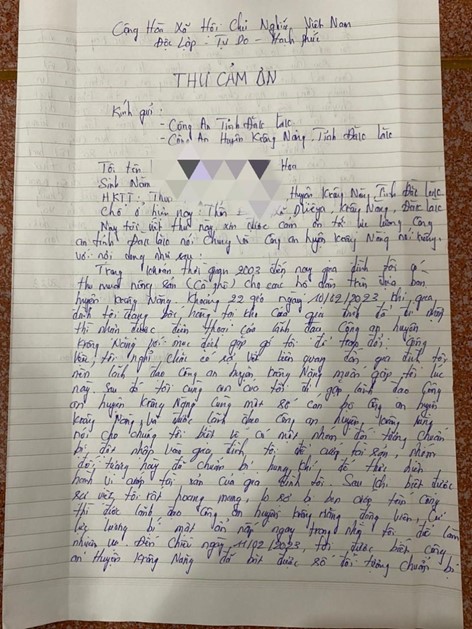 Cộng Hòa Xã Hội Chủ Nghĩa Việt Nam
Độc Lập - Tự Do - Hạnh phúc
THƯ CẢM ƠN
Kính gửi:
- Công An Tỉnh Đăk Lăk
- Công An Huyện Krông Năng, Tỉnh Đăk Lăk
Tôi tên Hoa
Sinh Năm
HKTT: Thôn Huyện Krông Năng, Tỉnh Đăk Lăk
Chỗ ở hiện nay Thôn xã Dliêya, Krông Năng, Đăk Lăk
Nay tôi viết thư này xin được cảm ơn tới lực lượng Công
an tỉnh Đăk Lăk nói chung và Công an huyện Krông Năng nói riêng
với nội dung như sau:
Trong khoản thời gian 2003 đến nay gia đình tôi có
thu mua nông sản (Cà phê) cho các hộ dân trên địa bàn
huyện Krông Năng. Khoảng 22 giờ ngày 10/02/2023 khi gia
đình tôi đang bốc hàng tại kho của gia đình
thì nhận được điện thoại của lãnh đạo Công an huyện
Krông Năng với mục đích gặp gỡ tôi để trao đổi công
việc, tôi nghĩ chắc có sự việc liên quan đến gia đình tôi
nên lãnh đạo Công an huyện Krông Năng muốn gặp tôi lúc
này sau đó tôi cùng con của tôi đi gặp lãnh đạo Công
an huyện Krông Năng cùng một số cán bộ công an huyện
Krông Năng và được lãnh đạo Công an huyện Krông Năng
nói cho chúng tôi biết là có một nhóm đối tượng chuẩn
bị đột nhập vào gia đình tôi để cướp tài sản, nhóm
đối tượng này đã chuẩn bị hung khí để thực hiện
hành vi cướp tài sản của gia đình tôi. Sau khi biết được
sự việc, tôi rất hoang mang, lo sợ
thì được lãnh đạo công an huyện Krông Năng động viên, cử
lực lượng bí mật ngay trong nhà tôi để làm
nhiệm vụ. Đến chiều ngày 11/02/2023, tôi được biết Công
an Huyện Krông Năng đã bắt được số đối tượng chuẩn bị